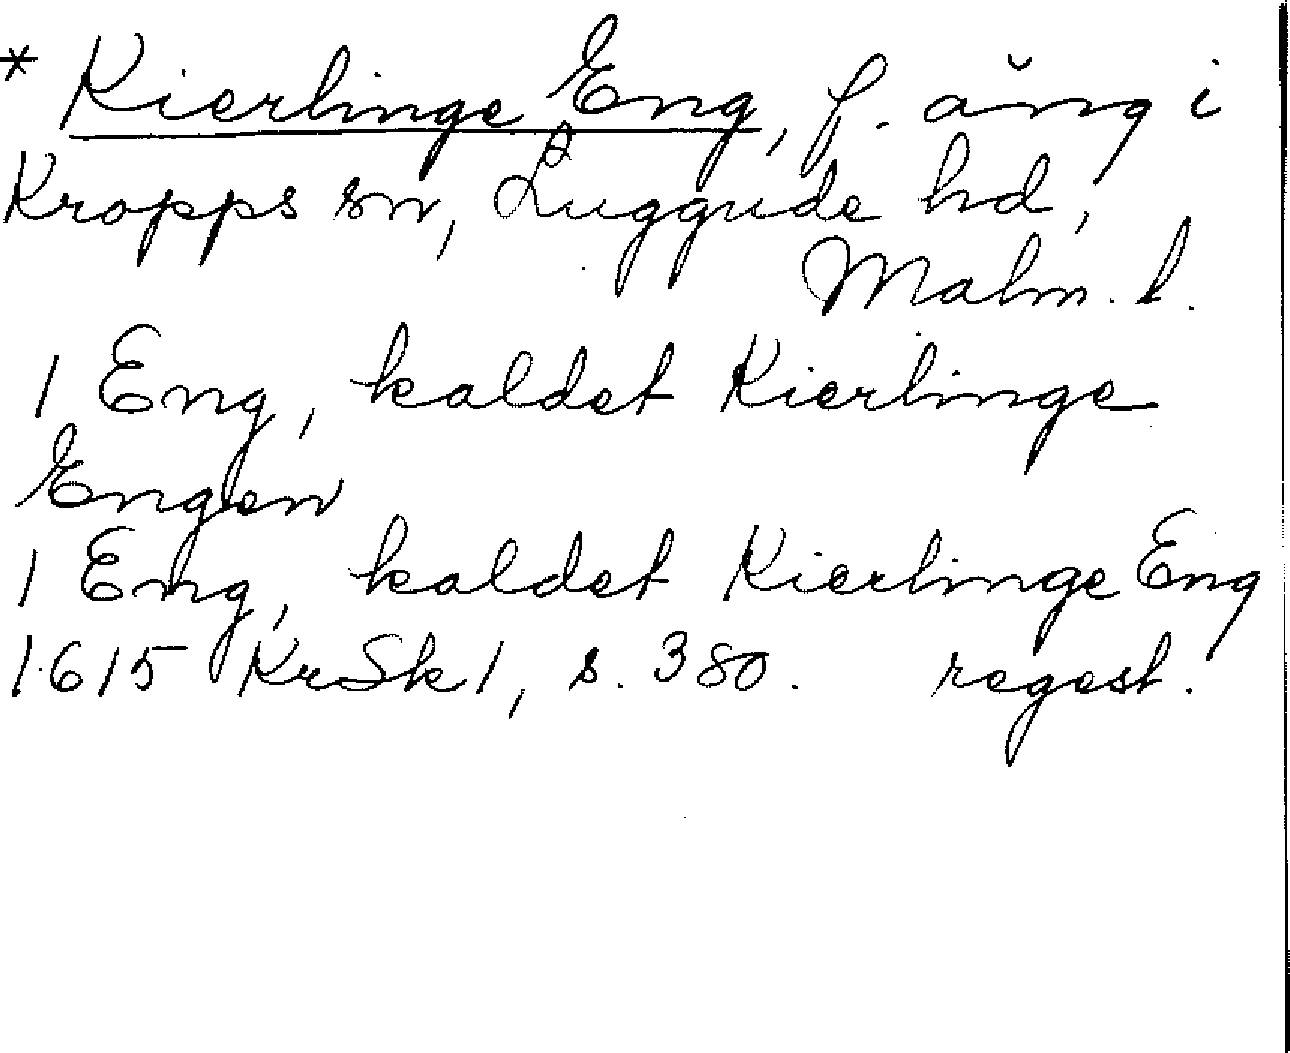 * Kierlinge Eng, f. äng i
Kropps sn, Luggude hd,
Malm. l.
1 Eng, kaldet Kierlinge
Engen
1 Eng, kaldet Kierlinge Eng
1615 KrSk 1, s. 380. regest.